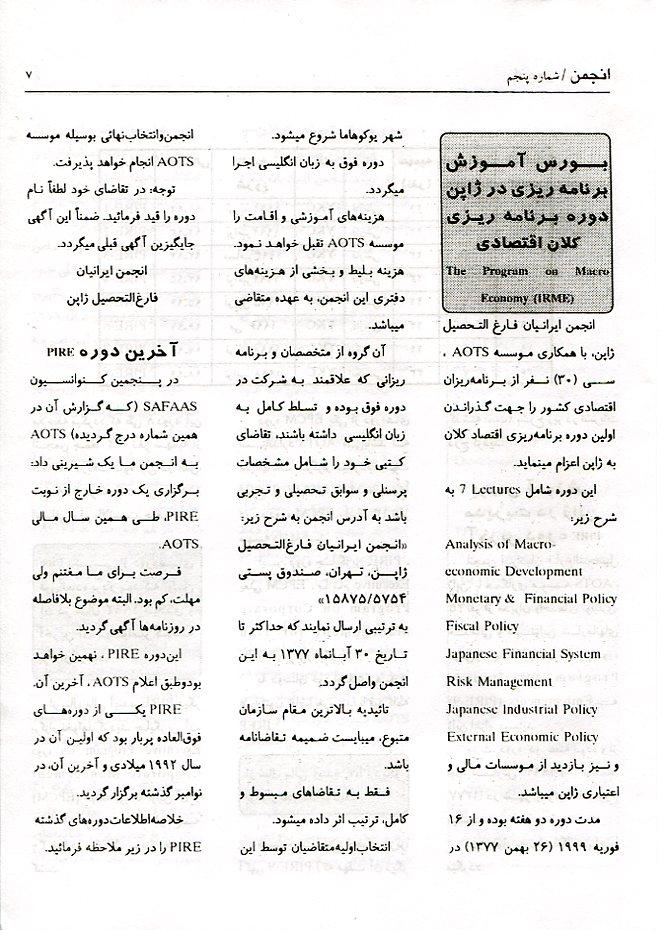 انجمن / شماره پنجم
۷
بورس آموزش
برنامه ریزی در ژاپن
دوره برنامه ریزی
کلان اقتصادی
The Program on Macro
Economy (IRME)
انجمن ایرانیان فارغ التحصیل
ژاپن، با همکاری موسسه AOTS ،
سی (۳۰) نفر از برنامه‌ریزان
اقتصادی کشور را جهت گذراندن
اولین دوره برنامه‌ریزی اقتصاد کلان
به ژاپن اعزام مینماید.
این دوره شامل 7 Lectures به
شرح زیر:
Analysis of Macro-
economic Development
Monetary & Financial Policy
Fiscal Policy
Japanese Financial System
Risk Management
Japanese Industrial Policy
External Economic Policy
و نیز بازدید از موسسات مالی و
اعتباری ژاپن میباشد.
مدت دوره دو هفته بوده و از ۱۶
فوریه ۱۹۹۹ (۲۶ بهمن ۱۳۷۷) در
شهر یوکوهاما شروع میشود.
دوره فوق به زبان انگلیسی اجرا
میگردد.
هزینه‌های آموزشی و اقامت را
موسسه AOTS تقبل خواهد نمود.
هزینه بلیط و بخشی از هزینه‌های
دفتری این انجمن، به عهده متقاضی
میباشد.
آن گروه از متخصصان و برنامه
ریزانی که علاقمند به شرکت در
دوره فوق بوده و تسلط کامل به
زبان انگلیسی داشته باشند، تقاضای
کتبی خود را شامل مشخصات
پرسنلی و سوابق تحصیلی و تجربی
باشد به آدرس انجمن به شرح زیر:
«انجمن ایرانیان فارغ‌التحصیل
ژاپن، تهران، صندوق پستی
۱۵۸۷۵/۵۷۵۴»
به ترتیبی ارسال نمایند که حداکثر تا
تاریخ ۳۰ آبانماه ۱۳۷۷ به این
انجمن واصل گردد.
تائیدیه بالاترین مقام سازمان
متبوع، میبایست ضمیمه تقاضانامه
باشد.
فقط به تقاضاهای مبسوط و
کامل، ترتیب اثر داده میشود.
انتخاب‌اولیه‌متقاضیان توسط این
انجمن‌وانتخاب‌نهائی بوسیله موسسه
AOTS انجام خواهد پذیرفت.
توجه: در تقاضای خود لطفاً نام
دوره را قید فرمائید. ضمناً این آگهی
جایگیزین آگهی قبلی میگردد.
انجمن ایرانیان
فارغ‌التحصیل ژاپن
آخرین دوره PIRE
در پنجمین کنوانسیون
SAFAAS (که گزارش آن در
همین شماره درج گردیده) AOTS
به انجمن ما یک شیرینی داد:
برگزاری یک دوره خارج از نوبت
PIRE، طی همین سال مالی
AOTS.
فرصت برای ما مغتنم ولی
مهلت، کم بود. البته موضوع بلافاصله
در روزنامه‌ها آگهی گردید.
این‌دوره PIRE ، نهمین خواهد
بودوطبق اعلام AOTS ، آخرین آن.
PIRE یکی از دوره‌های
فوق‌العاده پربار بود که اولین آن در
سال ۱۹۹۲ میلادی و آخرین آن، در
نوامبر گذشته برگزار گردید.
خلاصه‌اطلاعات‌دوره‌های گذشته
PIRE را در زیر ملاحظه فرمائید.